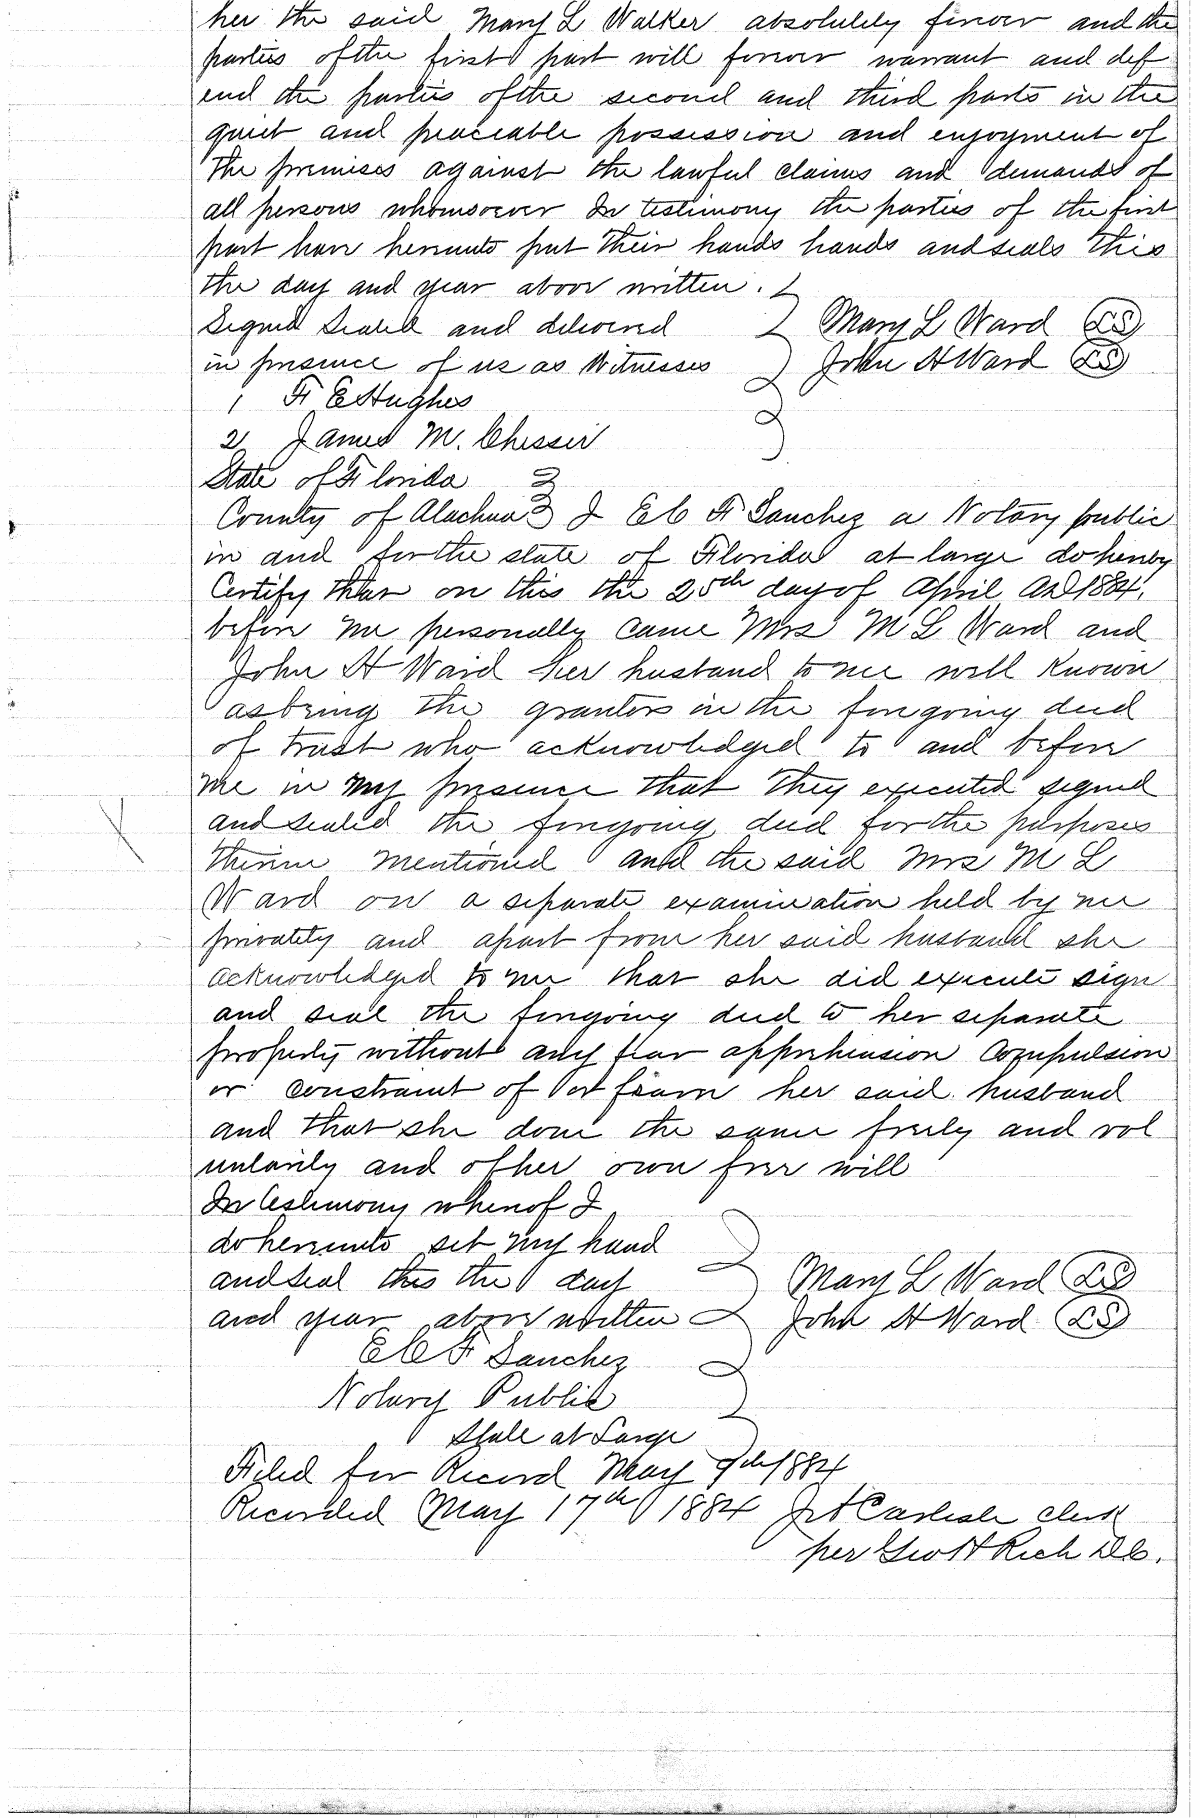 her the said Mary L Walker absolutely forever and the
parties of the first part will forever warrant and def
end the parties of the second and third parts in the
quiet and peaceable possession and enjoyment of
the premises against the lawful claims and demands of
all persons whomsoever In testimony the parties of the first
part have hereunto put their hands hands and seals this
the day and year above written.
Signed Sealed and delivered
in presence of us as Witnesses
Mary L Ward LS
John H Ward LS
1 F E Hughes
2 James M. Chesser
State of Florida
County of Alachua I E C F Sanchez a Notary public
in and for the state of Florida at large do hereby
Certify that on this the 25th day of April AD 1884.
before me personally came Mrs M L Ward and
John H Ward her husband to me well known
as being the grantors in the foregoing deed
of trust who acknowledged to and before
me in my presence that they executed signed
and sealed the foregoing deed for the purposes
therein mentioned and the said Mrs M L
Ward on a separate examination held by me
privately and apart from her said husband she
acknowledged to me that she did execute sign
and seal the foregoing deed to her separate
property without any fear apprehension Compulsion
or constraint of or from her said husband
and that she done the same freely and vol
untarily and of her own free will
In testimony whereof I
do hereunto set my hand
and seal this the day
and year above written
Mary L Ward LS
John H Ward LS
E C F Sanchez
Notary Public
State at Large
Filed for Record May 9th 1884
Recorded May 17th 1884 J A Carlisle Clerk
per Geo H Rich D.C.